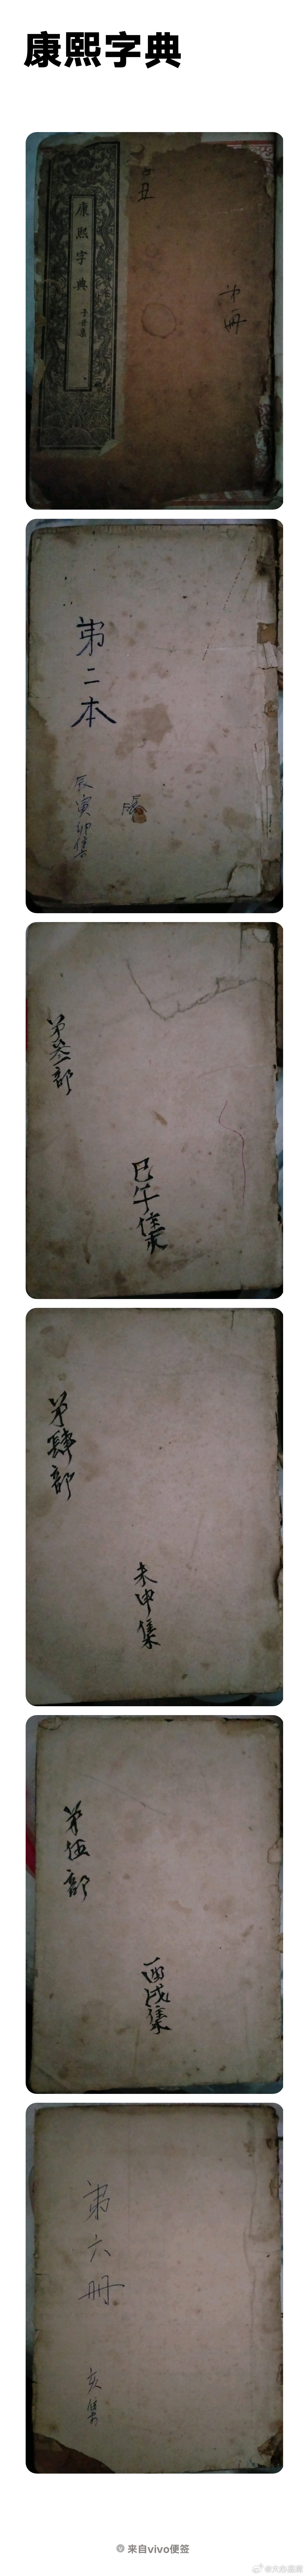 康熙字典
康熙字典
子丑集
子丑
第一册
第二本
辰寅卯集
第叁部
巳午集
第肆部
未申集
第伍部
酉戌集
第六册
亥集
来自vivo便签